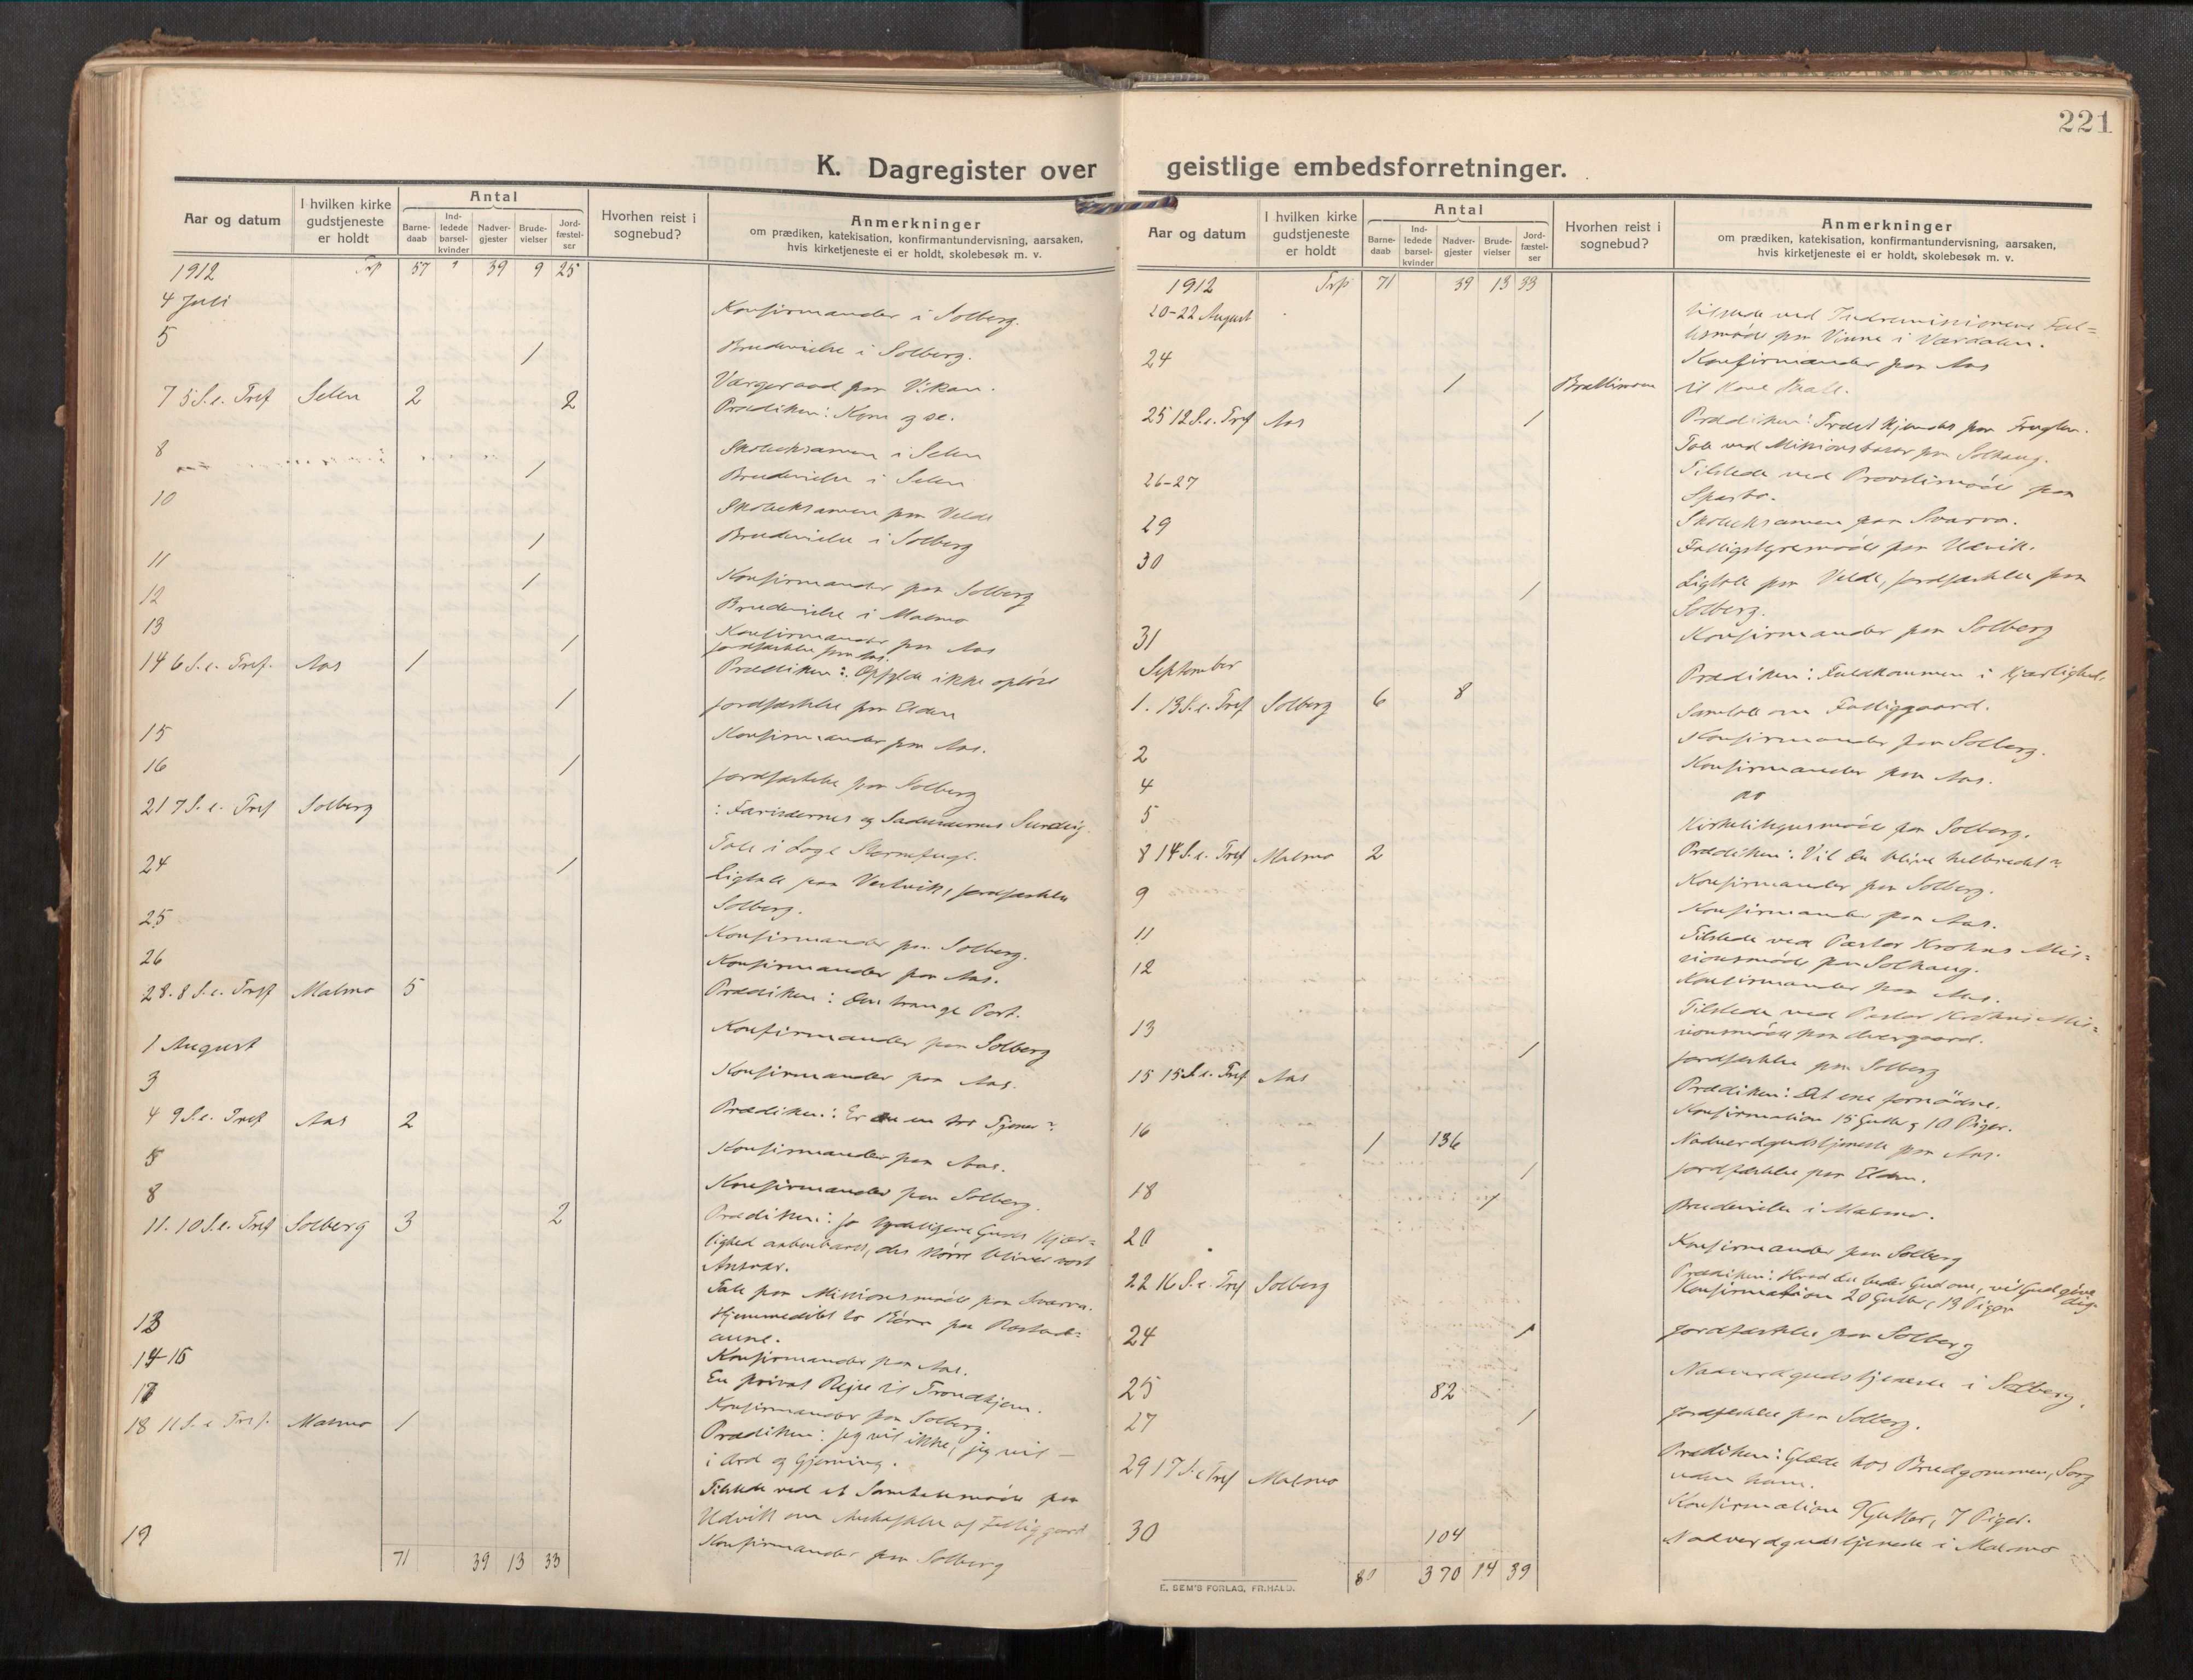 221
K. Dagregister over geistlige embedsforretninger.
Aar og datum
I hvilken kirke gudstjeneste er holdt
Antal
Barne-daab
Ind-ledede barsel-kvinder
Nadver-gjester
Brude-vielser
Jord-fæstel-ser
Hvorhen reist i sognebud?
Anmerkninger
om prædiken, katekisation, konfirmantundervisning, aarsaken,
hvis kirketjeneste ei er holdt, skolebesøk m. v.
1912 Trsp 57 39 9 25
4 Juli Konfirmander i Solberg.
5 1 Brudevielse i Solberg.
Værgeraad paa Vikan.
7 5 S. e. Tref Selen 2 2 Prædiken: Kom og se.
8 Skoleeksamen i Selen
1 Brudevielse i Selen
10 Skoleeksamen paa Velde
1 Brudevielse i Solberg
11 Konfirmander paa Solberg
12 1 Brudevielse i Malmo
13 Konfirmander paa Aas
1 Jordfæstelse paa Aas.
14 6 S. e. Tref. Aas 1 Prædiken: Opfylde ikke opløse
1 Jordfæstelse paa Elden
15 Konfirmander paa Aas.
16 1 Jordfæstelse paa Solberg
21 7 S. e. Tref Solberg : Farisæernes og Sadukæernes Surdeig.
Tale i Loge Stormfugl.
24 1 Ligtale paa Vestvik, jordfæstelse
Solberg.
25 Konfirmander paa Solberg.
26 Konfirmander paa Aas.
28. 8 S. e. Tref Malmo 5 Prædiken: Den trange Port.
1 August Konfirmander paa Solberg
3 Konfirmander paa Aas.
4 9 S. e. Tref Aas 2 Prædiken: Er du en tro Tjener?
5 Konfirmander paa Aas.
8 Konfirmander paa Solberg.
11. 10 S. e. Tref Solberg 3 2 Prædiken: Jo tydeligere Guds Kjær=
lighed aabenbares, des større bliver vort
Ansvar.
Tale paa Missionsmøde paa Svarva.
13 Hjemmedøbt to Børn paa Rostad=
aune.
Konfirmander paa Aas.
14-16 En privat Rejse til Trondhjem.
17 Konfirmander paa Solberg.
18 11 S. e Tref. Malmo 1 Prædiken: Jeg vil ikke, jeg vil —
i Ord og Gjerning.
Tilstede ved et Samtalemøde paa
Udvik om Anskaffelse af Fattiggaard
19 Konfirmander paa Solberg
71 39 13 33
Aar og datum
I hvilken kirke gudstjeneste er holdt
Antal
Barne-daab
Ind-ledede barsel-kvinder
Nadver-gjester
Brude-vielser
Jord-fæstel-ser
Hvorhen reist i sognebud?
Anmerkninger
om prædiken, katekisation, konfirmantundervisning, aarsaken,
hvis kirketjeneste ei er holdt, skolebesøk m. v.
1912 Trsp 71 39 13 33
20-22 August tilstede ved Indremissionens Fæl=
lesmøde paa Vinne i Værdalen.
24 Konfirmander paa Aas
1 til
25 12 S. e. Tref Aas 1 Prædiken: Træet kjendes paa Frugten.
Tale ved Missionsbasar paa Solhaug.
26-27 Tilstede ved Provstimøde paa
Sparbo.
29 Skoleeksamen paa Svarva.
30 Fattigstyremøde paa Udvik.
1 Ligtale paa Velde, jordfæstelse paa
Solberg.
31 Konfirmander paa Solberg
September
1. 13 S. e. Tref Solberg 6 8 Prædiken: Fuldkommen i Kjærlighed.
Samtale om Fattiggaard.
2 Konfirmander paa Solberg.
4 Konfirmander paa Aas.
5 Kirketilsynsmøde paa Solberg.
8 14 S. e. Tref Malmo 2 Prædiken: Vil du blive helbredet?
9 Konfirmander paa Solberg.
11 Konfirmander paa Aas.
12 Tilstede ved Pastor Krohns Mis=
sionsmøde paa Solhaug.
Konfirmander paa Aas.
13 Tilstede ved Pastor Krohns Mis=
sionsmøde paa
1 Jordfæstelse paa Solberg
15 15 S. e. Tref Aas Prædiken: Det ene fornødne.
Konfirmation 15 Gutter, 10 Piger.
16 1 136 Nadverdgudstjeneste paa Aas.
1 Jordfæstelse paa Elden.
18 1 Brudevielse i Malmo.
20 Konfirmander paa Solberg
22 16 S. e. Tref Solberg Prædiken: Hvad du beder Gud om, vil Gud give
dig.
Konfirmation 20 Gutter, 13 Piger
24 1 Jordfæstelse paa Solberg
25 82 Nadverdgudstjeneste i Solberg.
27 1 Jordfæstelse paa Solberg.
29 17 S. e Tref Malmo Prædiken: Glæde hos Brudgommen, Sorg
uden ham.
Konfirmation 9 Gutter, 7 Piger.
30 104 Nadverdgudstjeneste i Malmo
80 370 14 39
E. SEM'S FORLAG, FR.HALD.